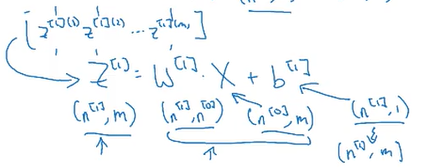 [ z^{[1](1)} z^{[1](2)} ... z^{[1](m)} ]
Z^{[1]} = W^{[1]} · X + b^{[1]}
(n^{[1]}, m) (n^{[1]}, n^{[0]}) (n^{[0]}, m) (n^{[1]}, 1)
(n^{[1]}, m)